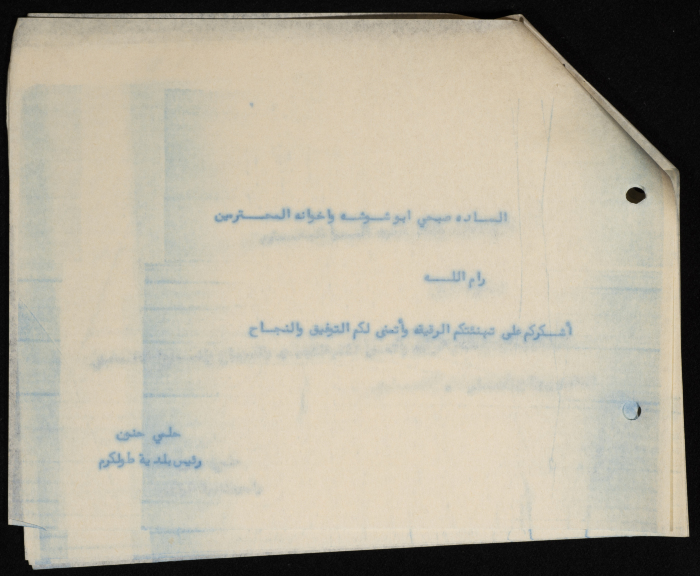 الساده صبحي ابو شوشه واخوانه المحترمين
رام الله
أشكركم على تهنئتكم الرقيقه وأتمنى لكم التوفيق والنجاح
حلمي حنون
رئيس بلدية طولكرم